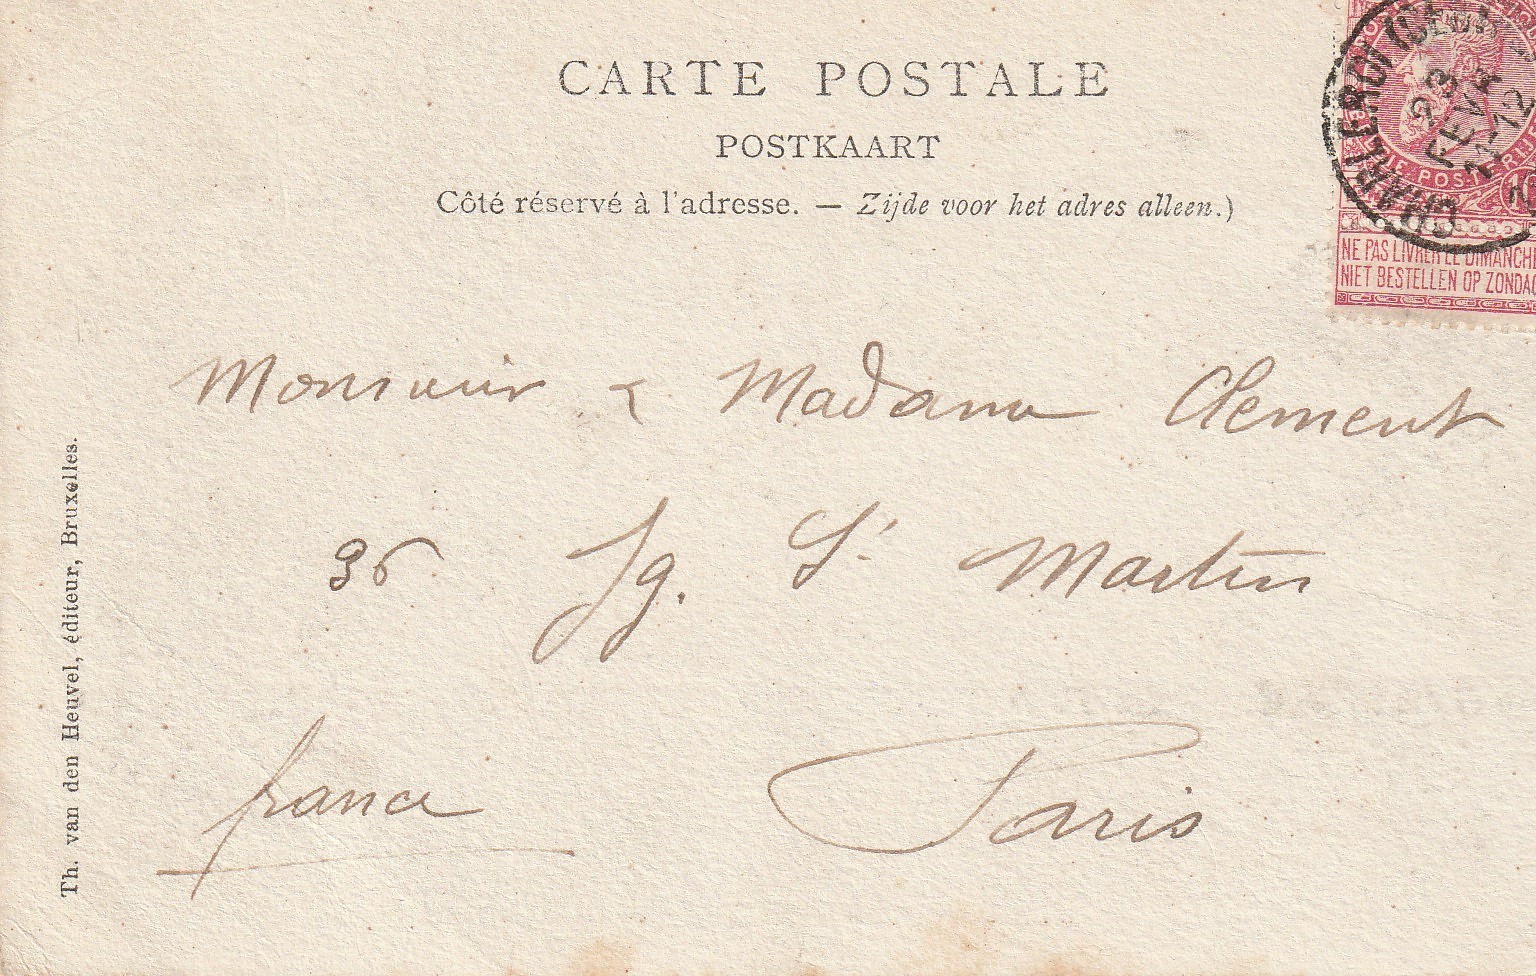 CARTE POSTALE
POSTKAART
Côté réservé à l'adresse. — Zijde voor het adres alleen.)
CHARLEROI
23
FEVR
NE PAS LIVRER LE DIMANCHE
NIET BESTELLEN OP ZONDAG
Monsieur & Madame Clement
36 fg. St Martin
Paris
france
Th. van den Heuvel, éditeur, Bruxelles.